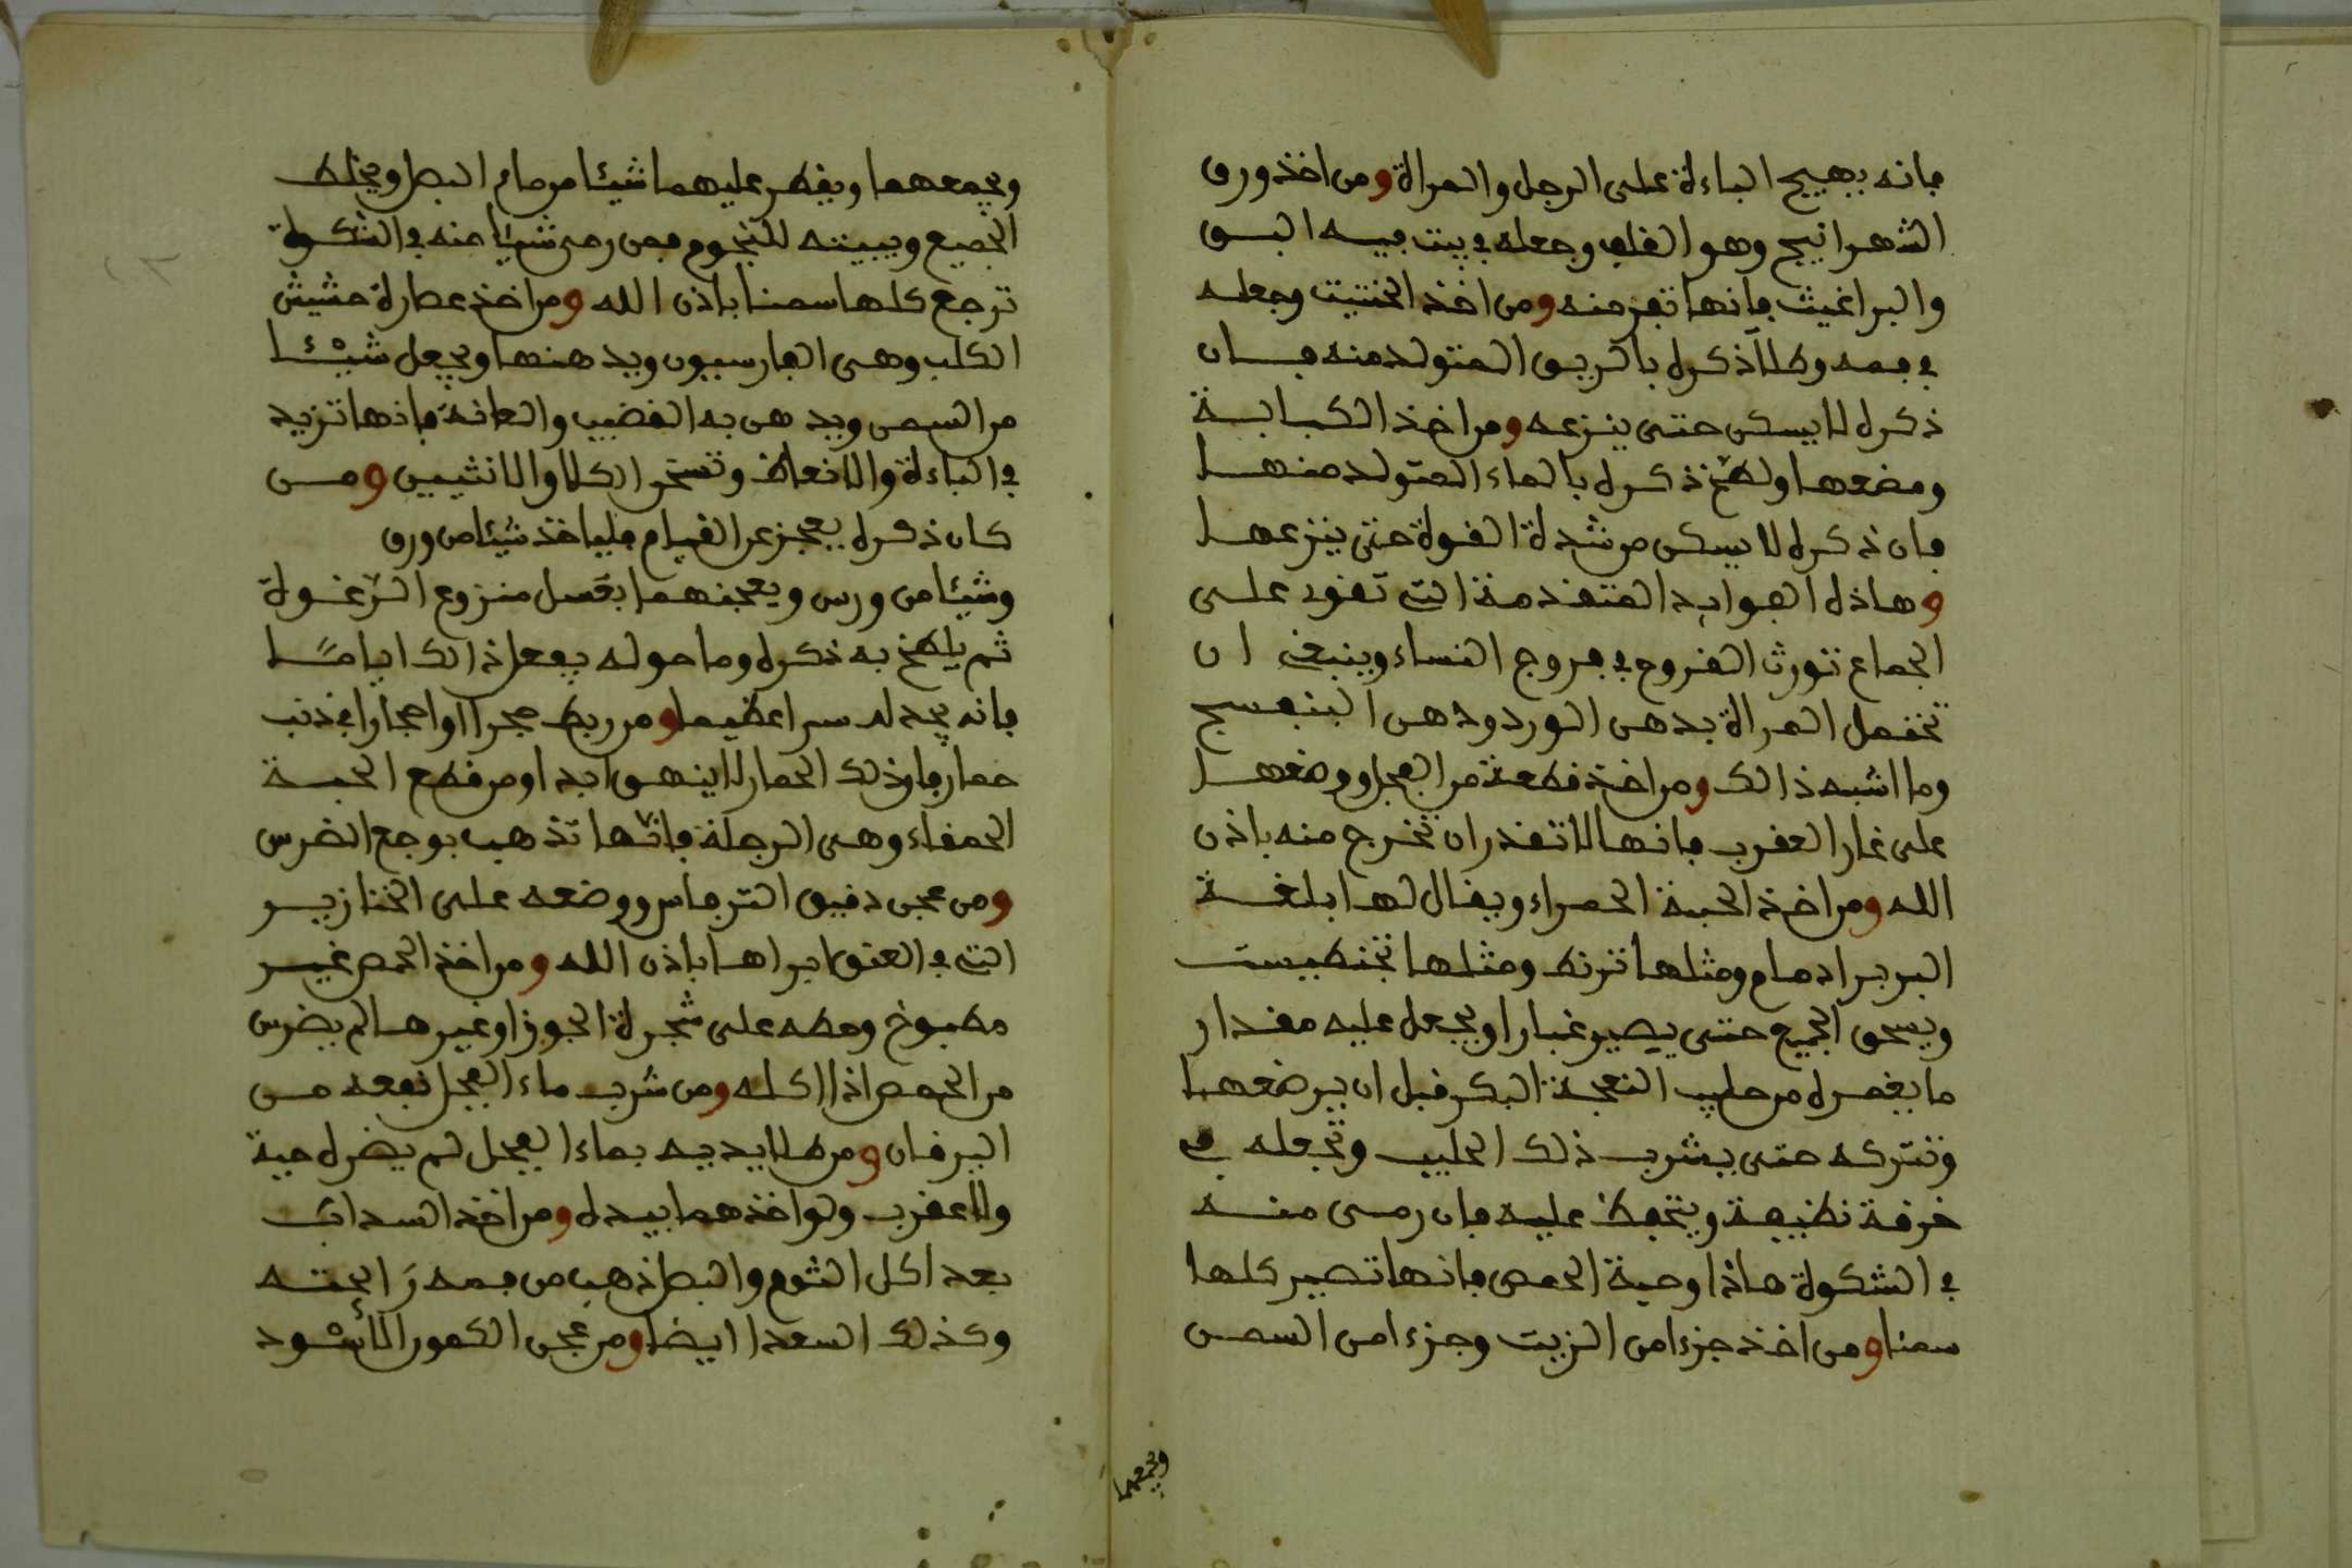 فانه يهيج الباءة على الرجل والمراة ومن اخذ ورق
الشهرانيج وهو القلب وجعله في بيت فيه البق
والبراغيث فانها تفر منه ومن اخذ الحنتيت وجعله
في فمه وطلا ذكره بالريق المتولد منه فان
ذكره لا يسكن حتى ينزعه ومن اخذ الكبابة
ومضعها ولطخ ذكره بالماء المتولد منها
فان ذكره لا يسكن من شدة القوة حتى ينزعها
وهاذه الفوايد المتقدمة التي تقوي على
الجماع تورث القروح في فروج النساء وينبغي ان
تحتمل المراة بدهن الورد ودهن البنفسج
وما اشبه ذالك ومن اخذ قطعة من الفجل ووضعها
على غار العقرب فانها لا تقدر ان تخرج منه باذن
الله ومن اخذ الحبة الحمراء ويقال لها بلغة
البربر ادمام ومثلها تزنط ومثلها تنطيست
ويسحق الجميع حتى يصير غبارا ويجعل عليه مقدار
ما يغمره من حليب النعجة البكر قبل ان يرضعها
وتتركه حتى يشرب ذلك الحليب وتجعله في
خرقة نظيفة ويتحفظ عليه فان رمى منه
في الشكوة هاذا وحبة الحمص فانها تصير كلها
سمنا ومن اخذ جزءا من الزيت وجزءا من السمن
ويجمعهما
ويجمعهما ويقطر عليهما شيئا من ماء البصل ويخلط
الجميع ويبيته للنجوم فمن رمى شيئا منه في الشكوة
ترجع كلها سمنا باذن الله ومن اخذ عصارة حشيش
الكلب وهي الفارسيون ويدهنها ويجعل شيئا
من السمن ويدهن به القضيب والعانة فانها تزيد
في الباءة والانعاظ وتسخن الكلا والانثيين ومن
كان ذكره يعجز عن القيام فلياخذ شيئا من ورق
وشيئا من ورس ويعجنهما بعسل منزوع الرغوة
ثم يلطخ به ذكره وما حوله يفعل ذالك اياما
فانه يجد له سرا عظيما ومن ربط حجرا او احجارا في ذنب
حمار فان ذلك الحمار لا ينهق ابدا ومن قطع الحبة
الحمقاء وهي الرجلة فانها تذهب بوجع الضرس
ومن عجن دقيق الترماس ووضعه على الخنازير
التي في العنق ابراها باذن الله ومن اخذ الحمص غير
مطبوخ وحطه على شجرة الجوز او غيرها لم يضرس
من الحمص اذا اكله ومن شرب ماء الفجل نفعه من
اليرقان ومن طلا يديه بماء الفجل لم يضره حية
ولا عقرب ولو اخذهما بيده ومن اخذ السداب
بعد اكل الثوم والبصل ذهب من فمه رايحته
وكذلك السعدا ايضا ومن عجن الكمون الاسود